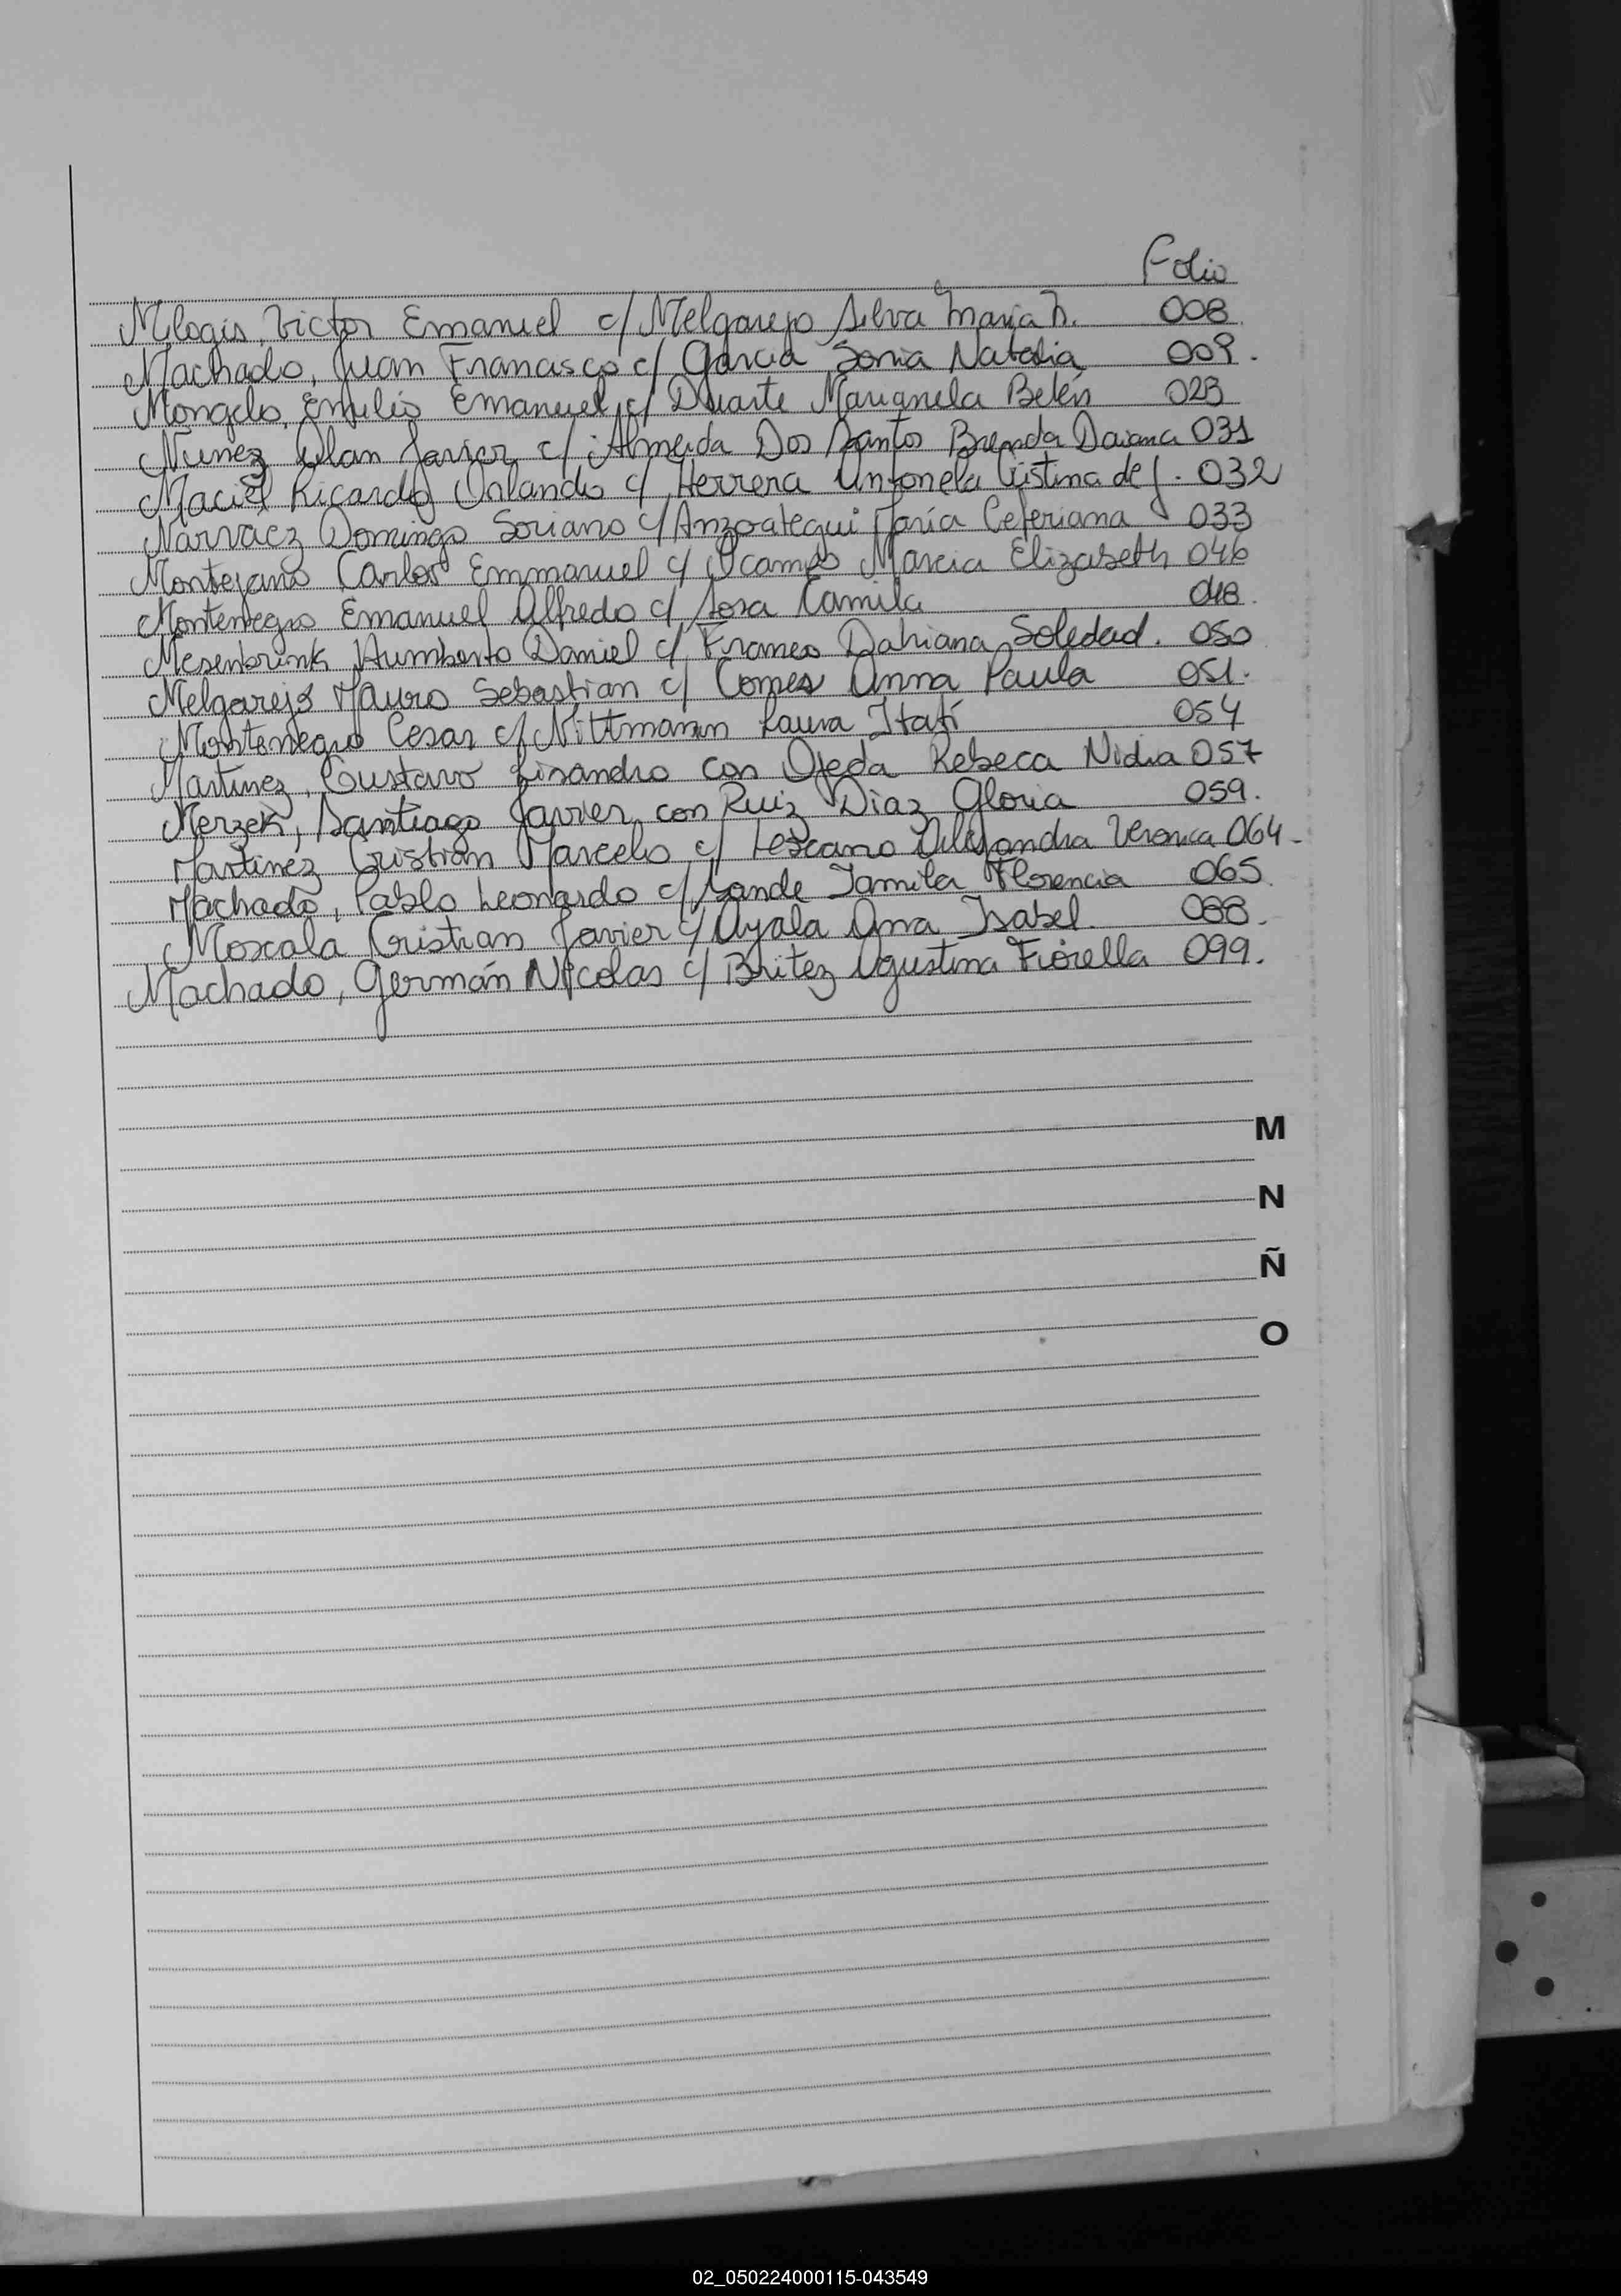 Folio
Milogis, Victor Emanuel c/ Melgarejo Silva Maria 008
Machado, Juan Francisco c/ Garcia Sonia Natalia 009.
Mongelo, Emilio Emanuel c/ Duarte Marianela Belén 023
Nuñez Alan Javier c/ Almeida Dos Santos Brenda Daiana 031
Maciel Ricardo Orlando c/ Herrera Antonela Cristina de J. 032
Narvaez Domingo Soriano c/ Anzoategui María Ceferiana 033
Montejano Carlos Emmanuel c/ Ocampo Marcia Elizabeth 046
Montenegro Emanuel Alfredo c/ Sosa Camila 048.
Mesenbrink Humberto Daniel c/ Franco Dahiana Soledad. 050
Melgarejo Mauro Sebastian c/ Gomes Anna Paula 051.
Montenegro Cesar c/ Nittmann Laura Itatí 054
Martinez, Gustavo Lisandro con Ojeda Rebeca Nidia 057
Merzek, Santiago Javier con Ruiz Diaz Gloria 059.
Martinez Cristian Marcelo c/ Lescano Alejandra Veronica 064-
Machado, Pablo Leonardo c/ Sande Jamila Florencia 065
Moscala Cristian Javier c/ Ayala Ana Isabel. 088.
Machado, Germán Nicolas c/ Britez Agustina Fiorella 099.
M
N
Ñ
O
02_050224000115-043549